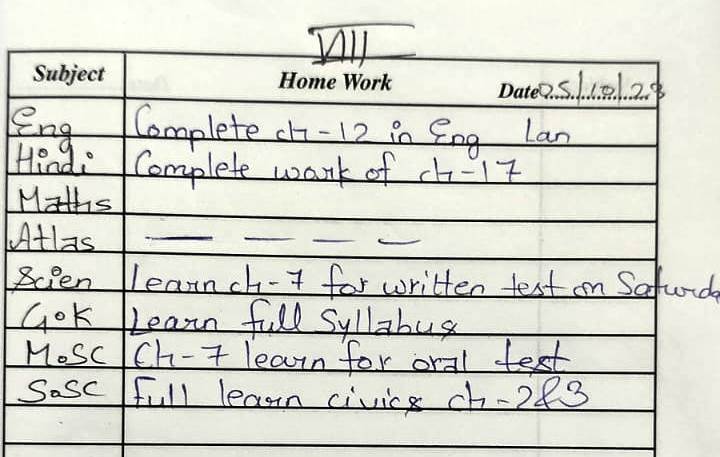 VIII
Subject Home Work Date 25/10/23
Eng Complete ch-12 in Eng Lan
Hindi Complete work of ch-17
Maths
Atlas — — — —
Scien learn ch-7 for written test on Saturda
G.K Learn full Syllabus
M.SC Ch-7 learn for oral test
S.SC Full learn civics ch-2&3